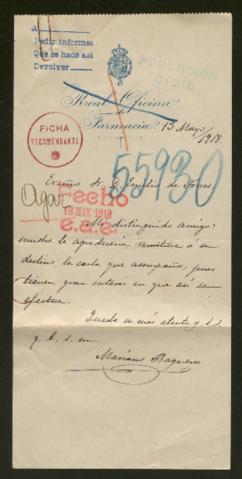 A
Pedir informes
Que se haga así
Devolver
POBLACIÓN
CIVIL
Real Oficina
de
Farmacia
13 Mayo
1918.
FICHA
RECOMENDANTE
55930
Excmo. Sr. D. Emilio de Torres
Agar
Fecho
18 MAY. 1918
e.a.e.
Mi distinguido amigo:
mucho le agradecería remitiera á su
destino la carta que acompaño, pues
tienen gran interés en que así se
efectúe.
Queda su más atento y s.s.
q. b. s. m.
Mariano Baquero